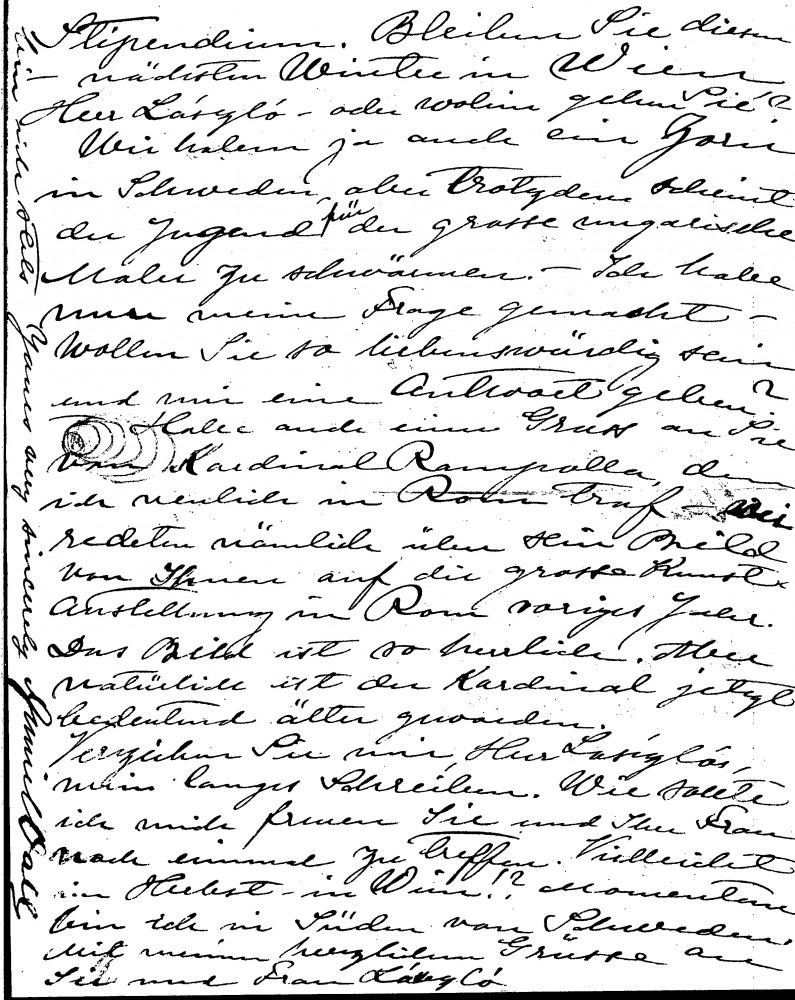 Stipendium. Bleiben Sie diesen
– nächsten Winter in Wien
Herr László – oder wohin gehen Sie?
Wir haben ja auch ein Zorn
in Schweden, aber trotzdem scheint
der Jugend für der grosse ungarische
Maler zu schwärmen. – Ich habe
nun meine Frage gemacht –
Wollen Sie so liebenswürdig sein
und mir eine Antwort geben?
Habe auch einen Gruss an Sie
von Kardinal Rampolla, den
ich neulich in Rom traf – wir
redeten nämlich über sein Bild
von Ihnen auf die grosse Kunst-
Austellung in Rom voriges Jahr.
Das Bild ist so herrlich. Aber
natürlich ist der Kardinal jetzt
bedeutend älter geworden.
Verzeihen Sie mir, Herr László,
mein langes Schreiben. Wie sollte
ich mich freuen Sie und Ihre Frau
noch einmal zu treffen. Vielleicht
im Herbst – in Wien!? Momentan
bin ich in Süden von Schweden.
Mit meinen herzlichen Grüsse an
Sie und Frau László
Yours very sincerely